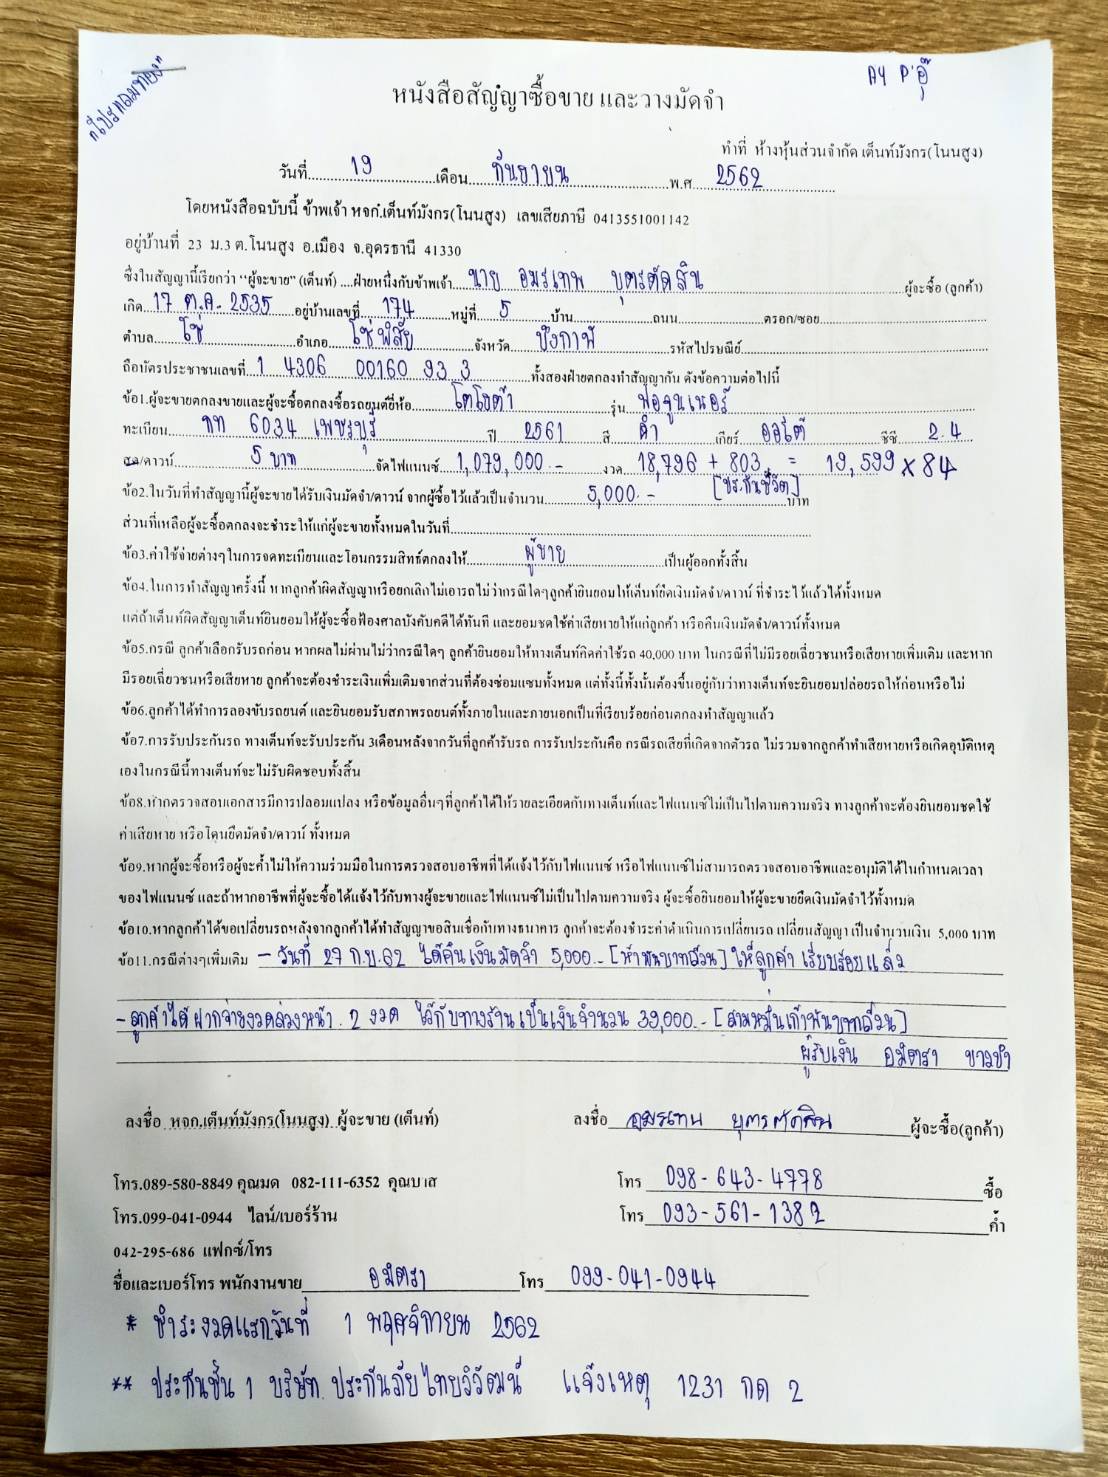 "โปรแถมทอง"
A4 P'อุ๊
หนังสือสัญญาซื้อขาย และวางมัดจำ
ทำที่ ห้างหุ้นส่วนจำกัด เต็นท์มังกร(โนนสูง)
วันที่ 19 เดือน กันยายน พ.ศ 2562
โดยหนังสือฉบับนี้ ข้าพเจ้า หจก.เต็นท์มังกร(โนนสูง) เลขเสียภาษี 0413551001142
อยู่บ้านที่ 23 ม.3 ต.โนนสูง อ.เมือง จ.อุดรธานี 41330
ซึ่งในสัญญานี้เรียกว่า "ผู้จะขาย" (เต็นท์) ....ฝ่ายหนึ่งกับข้าพเจ้า นาย อมรเทพ บุตรตัดสิน ผู้จะซื้อ (ลูกค้า)
เกิด 17 ต.ค. 2535 อยู่บ้านเลขที่ 174 หมู่ที่ 5 บ้าน ถนน ตรอก/ซอย
ตำบล โซ่ อำเภอ โซ่พิสัย จังหวัด บึงกาฬ รหัสไปรษณีย์
ถือบัตรประชาชนเลขที่ 1 4306 00160 93 3 ทั้งสองฝ่ายตกลงทำสัญญากัน ดังข้อความต่อไปนี้
ข้อ1.ผู้จะขายตกลงขายและผู้จะซื้อตกลงซื้อรถยนต์ยี่ห้อ โตโยต้า รุ่น ฟอจูนเนอร์
ทะเบียน กท 6034 เพชรบุรี ปี 2561 สี ดำ เกียร์ ออโต้ ซีซี 2.4
สด/ดาวน์ 5 บาท จัดไฟแนนซ์ 1,079,000.- งวด 18,796 + 803 = 19,599 x 84
[ประกันชีวิต]
ข้อ2.ในวันที่ทำสัญญานี้ผู้จะขายได้รับเงินมัดจำ/ดาวน์ จากผู้ซื้อไว้แล้วเป็นจำนวน 5,000.- บาท
ส่วนที่เหลือผู้จะซื้อตกลงจะชำระให้แก่ผู้จะขายทั้งหมดในวันที่
ข้อ3.ค่าใช้จ่ายต่างๆในการจดทะเบียนและโอนกรรมสิทธ์ตกลงให้ ผู้ขาย เป็นผู้ออกทั้งสิ้น
ข้อ4.ในการทำสัญญาครั้งนี้ หากลูกค้าผิดสัญญาหรือยกเลิกไม่เอารถไม่ว่ากรณีใดๆลูกค้ายินยอมให้เต็นท์ยึดเงินมัดจำ/ดาวน์ ที่ชำระไว้แล้วได้ทั้งหมด
แต่ถ้าเต็นท์ผิดสัญญาเต็นท์ยินยอมให้ผู้จะซื้อฟ้องศาลบังคับคดีได้ทันที และยอมชดใช้ค่าเสียหายให้แก่ลูกค้า หรือคืนเงินมัดจำ/ดาวน์ทั้งหมด
ข้อ5.กรณี ลูกค้าเลือกรับรถก่อน หากผลไม่ผ่านไม่ว่ากรณีใดๆ ลูกค้ายินยอมให้ทางเต็นท์คิดค่าใช้รถ 40,000 บาท ในกรณีที่ไม่มีรอยเฉี่ยวชนหรือเสียหายเพิ่มเติม และหาก
มีรอยเฉี่ยวชนหรือเสียหาย ลูกค้าจะต้องชำระเงินเพิ่มเติมจากส่วนที่ต้องซ่อมแซมทั้งหมด แต่ทั้งนี้ทั้งนั้นต้องขึ้นอยู่กับว่าทางเต็นท์จะยินยอมปล่อยรถให้ก่อนหรือไม่
ข้อ6.ลูกค้าได้ทำการลองขับรถยนต์ และยินยอมรับสภาพรถยนต์ทั้งภายในและภายนอกเป็นที่เรียบร้อยก่อนตกลงทำสัญญาแล้ว
ข้อ7.การรับประกันรถ ทางเต็นท์จะรับประกัน 3เดือนหลังจากวันที่ลูกค้ารับรถ การรับประกันคือ กรณีรถเสียที่เกิดจากตัวรถ ไม่รวมจากลูกค้าทำเสียหายหรือเกิดอุบัติเหตุ
เองในกรณีนี้ทางเต็นท์จะไม่รับผิดชอบทั้งสิ้น
ข้อ8.หากตรวจสอบเอกสารมีการปลอมแปลง หรือข้อมูลอื่นๆที่ลูกค้าได้ให้รายละเอียดกับทางเต็นท์และไฟแนนซ์ไม่เป็นไปตามความจริง ทางลูกค้าจะต้องยินยอมชดใช้
ค่าเสียหาย หรือโดนยึดมัดจำ/ดาวน์ ทั้งหมด
ข้อ9.หากผู้จะซื้อหรือผู้จะค้ำไม่ให้ความร่วมมือในการตรวจสอบอาชีพที่ได้แจ้งไว้กับไฟแนนซ์ หรือไฟแนนซ์ไม่สามารถตรวจสอบอาชีพและอนุมัติได้ในกำหนดเวลา
ของไฟแนนซ์ และถ้าหากอาชีพที่ผู้จะซื้อได้แจ้งไว้กับทางผู้จะขายและไฟแนนซ์ไม่เป็นไปตามความจริง ผู้จะซื้อยินยอมให้ผู้จะขายยึดเงินมัดจำไว้ทั้งหมด
ข้อ10.หากลูกค้าได้ขอเปลี่ยนรถหลังจากลูกค้าได้ทำสัญญาขอสินเชื่อกับทางธนาคาร ลูกค้าจะต้องชำระค่าดำเนินการเปลี่ยนรถ เปลี่ยนสัญญา เป็นจำนวนเงิน 5,000 บาท
ข้อ11.กรณีต่างๆเพิ่มเติม - วันที่ 27 ก.ย. 62 ได้คืนเงินมัดจำ 5,000.- [ห้าพันบาทถ้วน] ให้ลูกค้า เรียบร้อยแล้ว
- ลูกค้าได้ฝากจ่ายงวดล่วงหน้า 2 งวด ไว้กับทางร้านเป็นเงินจำนวน 39,000.- [สามหมื่นเก้าพันบาทถ้วน]
ผู้รับเงิน อมิตรา ขาวขำ
ลงชื่อ หจก.เต็นท์มังกร(โนนสูง) ผู้จะขาย (เต็นท์) ลงชื่อ อมรเทพ บุตรตัดสิน ผู้จะซื้อ(ลูกค้า)
โทร.089-580-8849 คุณมด 082-111-6352 คุณบาส โทร 098-643-4778 ซื้อ
โทร.099-041-0944 ไลน์/เบอร์ร้าน โทร 093-561-1382 ค้ำ
042-295-686 แฟกซ์/โทร
ชื่อและเบอร์โทร พนักงานขาย อมิตรา โทร 099-041-0944
* ชำระงวดแรกวันที่ 1 พฤศจิกายน 2562
** ประกันชั้น 1 บริษัท ประกันภัยไทยวิวัฒน์ แจ้งเหตุ 1231 กด 2